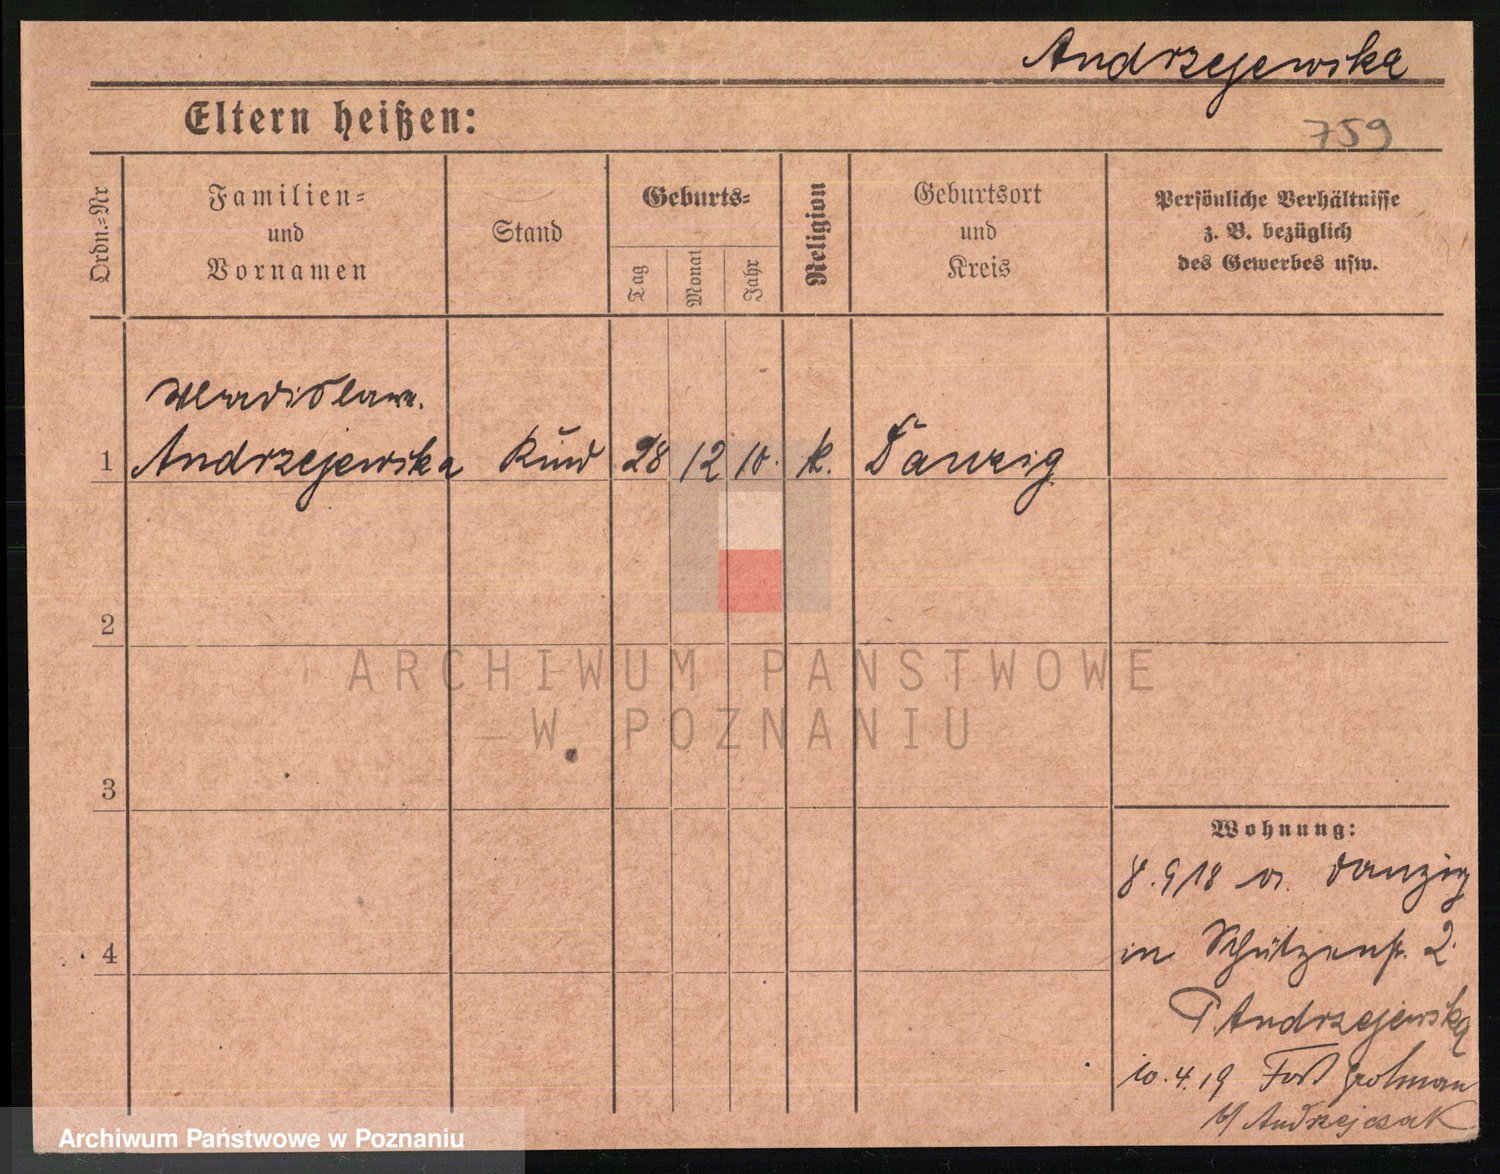 Andrzejewska
Eltern heißen:
759
Ordn.=Nr
Familien=
und
Vornamen
Stand
Geburts=
Tag
Monat
Jahr
Religion
Geburtsort
und
Kreis
Persönliche Verhältnisse
z. B. bezüglich
des Gewerbes usw.
Wladislawa
1 Andrzejewska Kind 28 12 10. k. Danzig
2
3
4
Wohnung:
8.9.18 v. Danzig
in Schützenstr. 2.
Andrzejewska
10.4.19 Fort Grolman
b/ Andrzejczak
ARCHIWUM PAŃSTWOWE
W POZNANIU
Archiwum Państwowe w Poznaniu